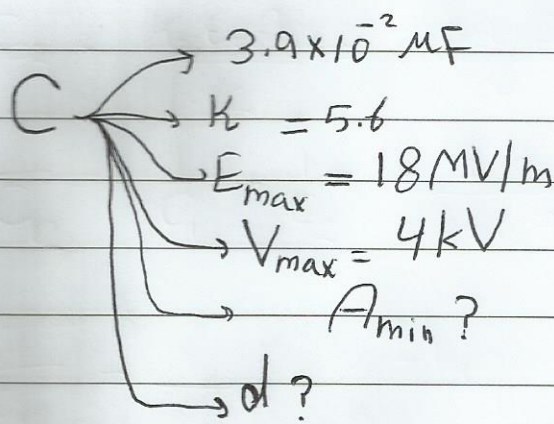 C
3.9×10⁻² μF
K = 5.6
E max = 18 MV/m
V max = 4kV
A min ?
d ?